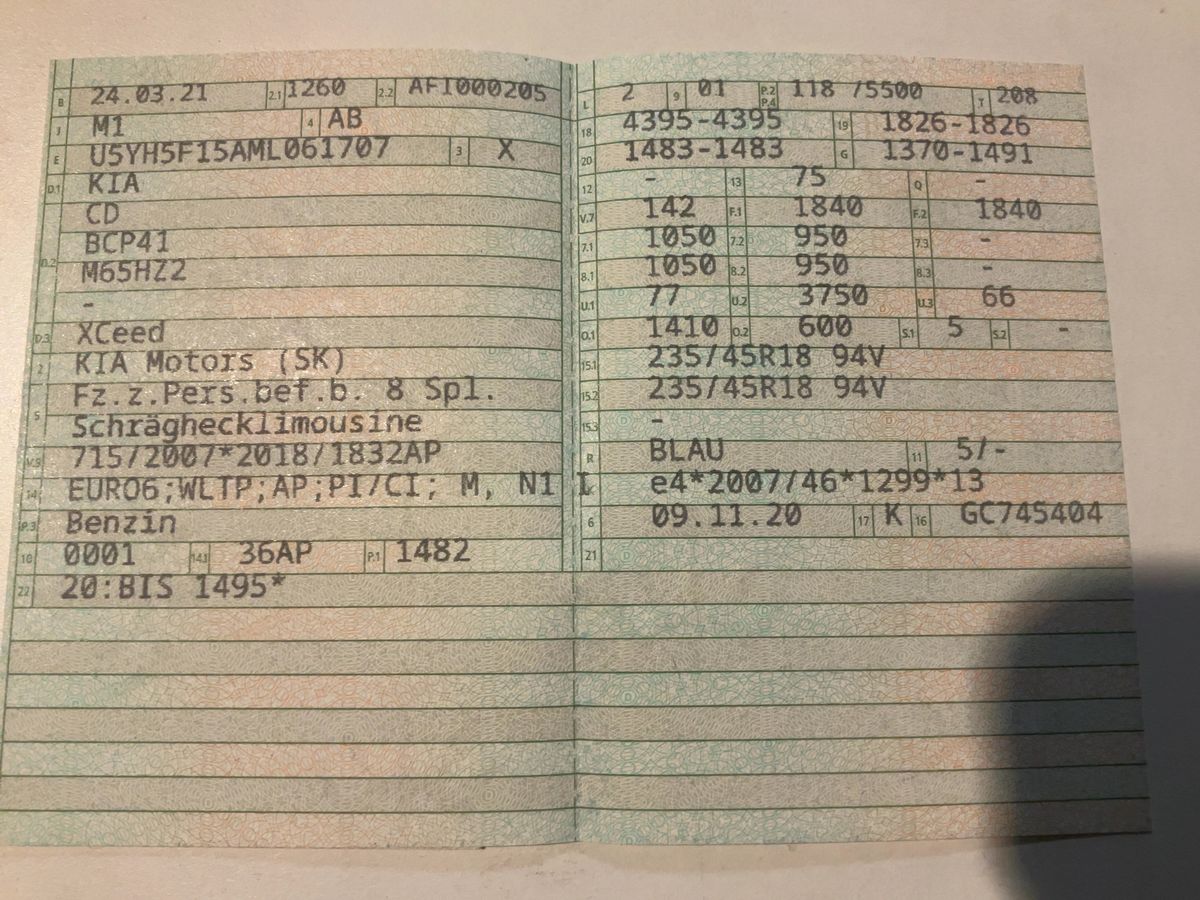 B 24.03.21 2.1 1260 2.2 AFI000205
J M1 4 AB
E U5YH5F15AML061707 3 X
D.1 KIA
CD
BCP41
D.2 M65HZ2
-
D.3 XCeed
2 KIA Motors (SK)
Fz.z.Pers.bef.b. 8 Spl.
5 Schräghecklimousine
V.9 715/2007*2018/1832AP
14 EURO6;WLTP;AP;PI/CI; M, N1 I
P.3 Benzin
10 0001 14.1 36AP P.1 1482
22 20:BIS 1495*
L 2 9 01 P.2 P.4 118 /5500 T 208
18 4395-4395 19 1826-1826
20 1483-1483 G 1370-1491
12 - 13 75 Q -
V.7 142 F.1 1840 F.2 1840
7.1 1050 7.2 950 7.3 -
8.1 1050 8.2 950 8.3 -
U.1 77 U.2 3750 U.3 66
O.1 1410 O.2 600 S.1 5 S.2 -
15.1 235/45R18 94V
15.2 235/45R18 94V
15.3 -
R BLAU 11 5/-
K e4*2007/46*1299*13
6 09.11.20 17 K 16 GC745404
21